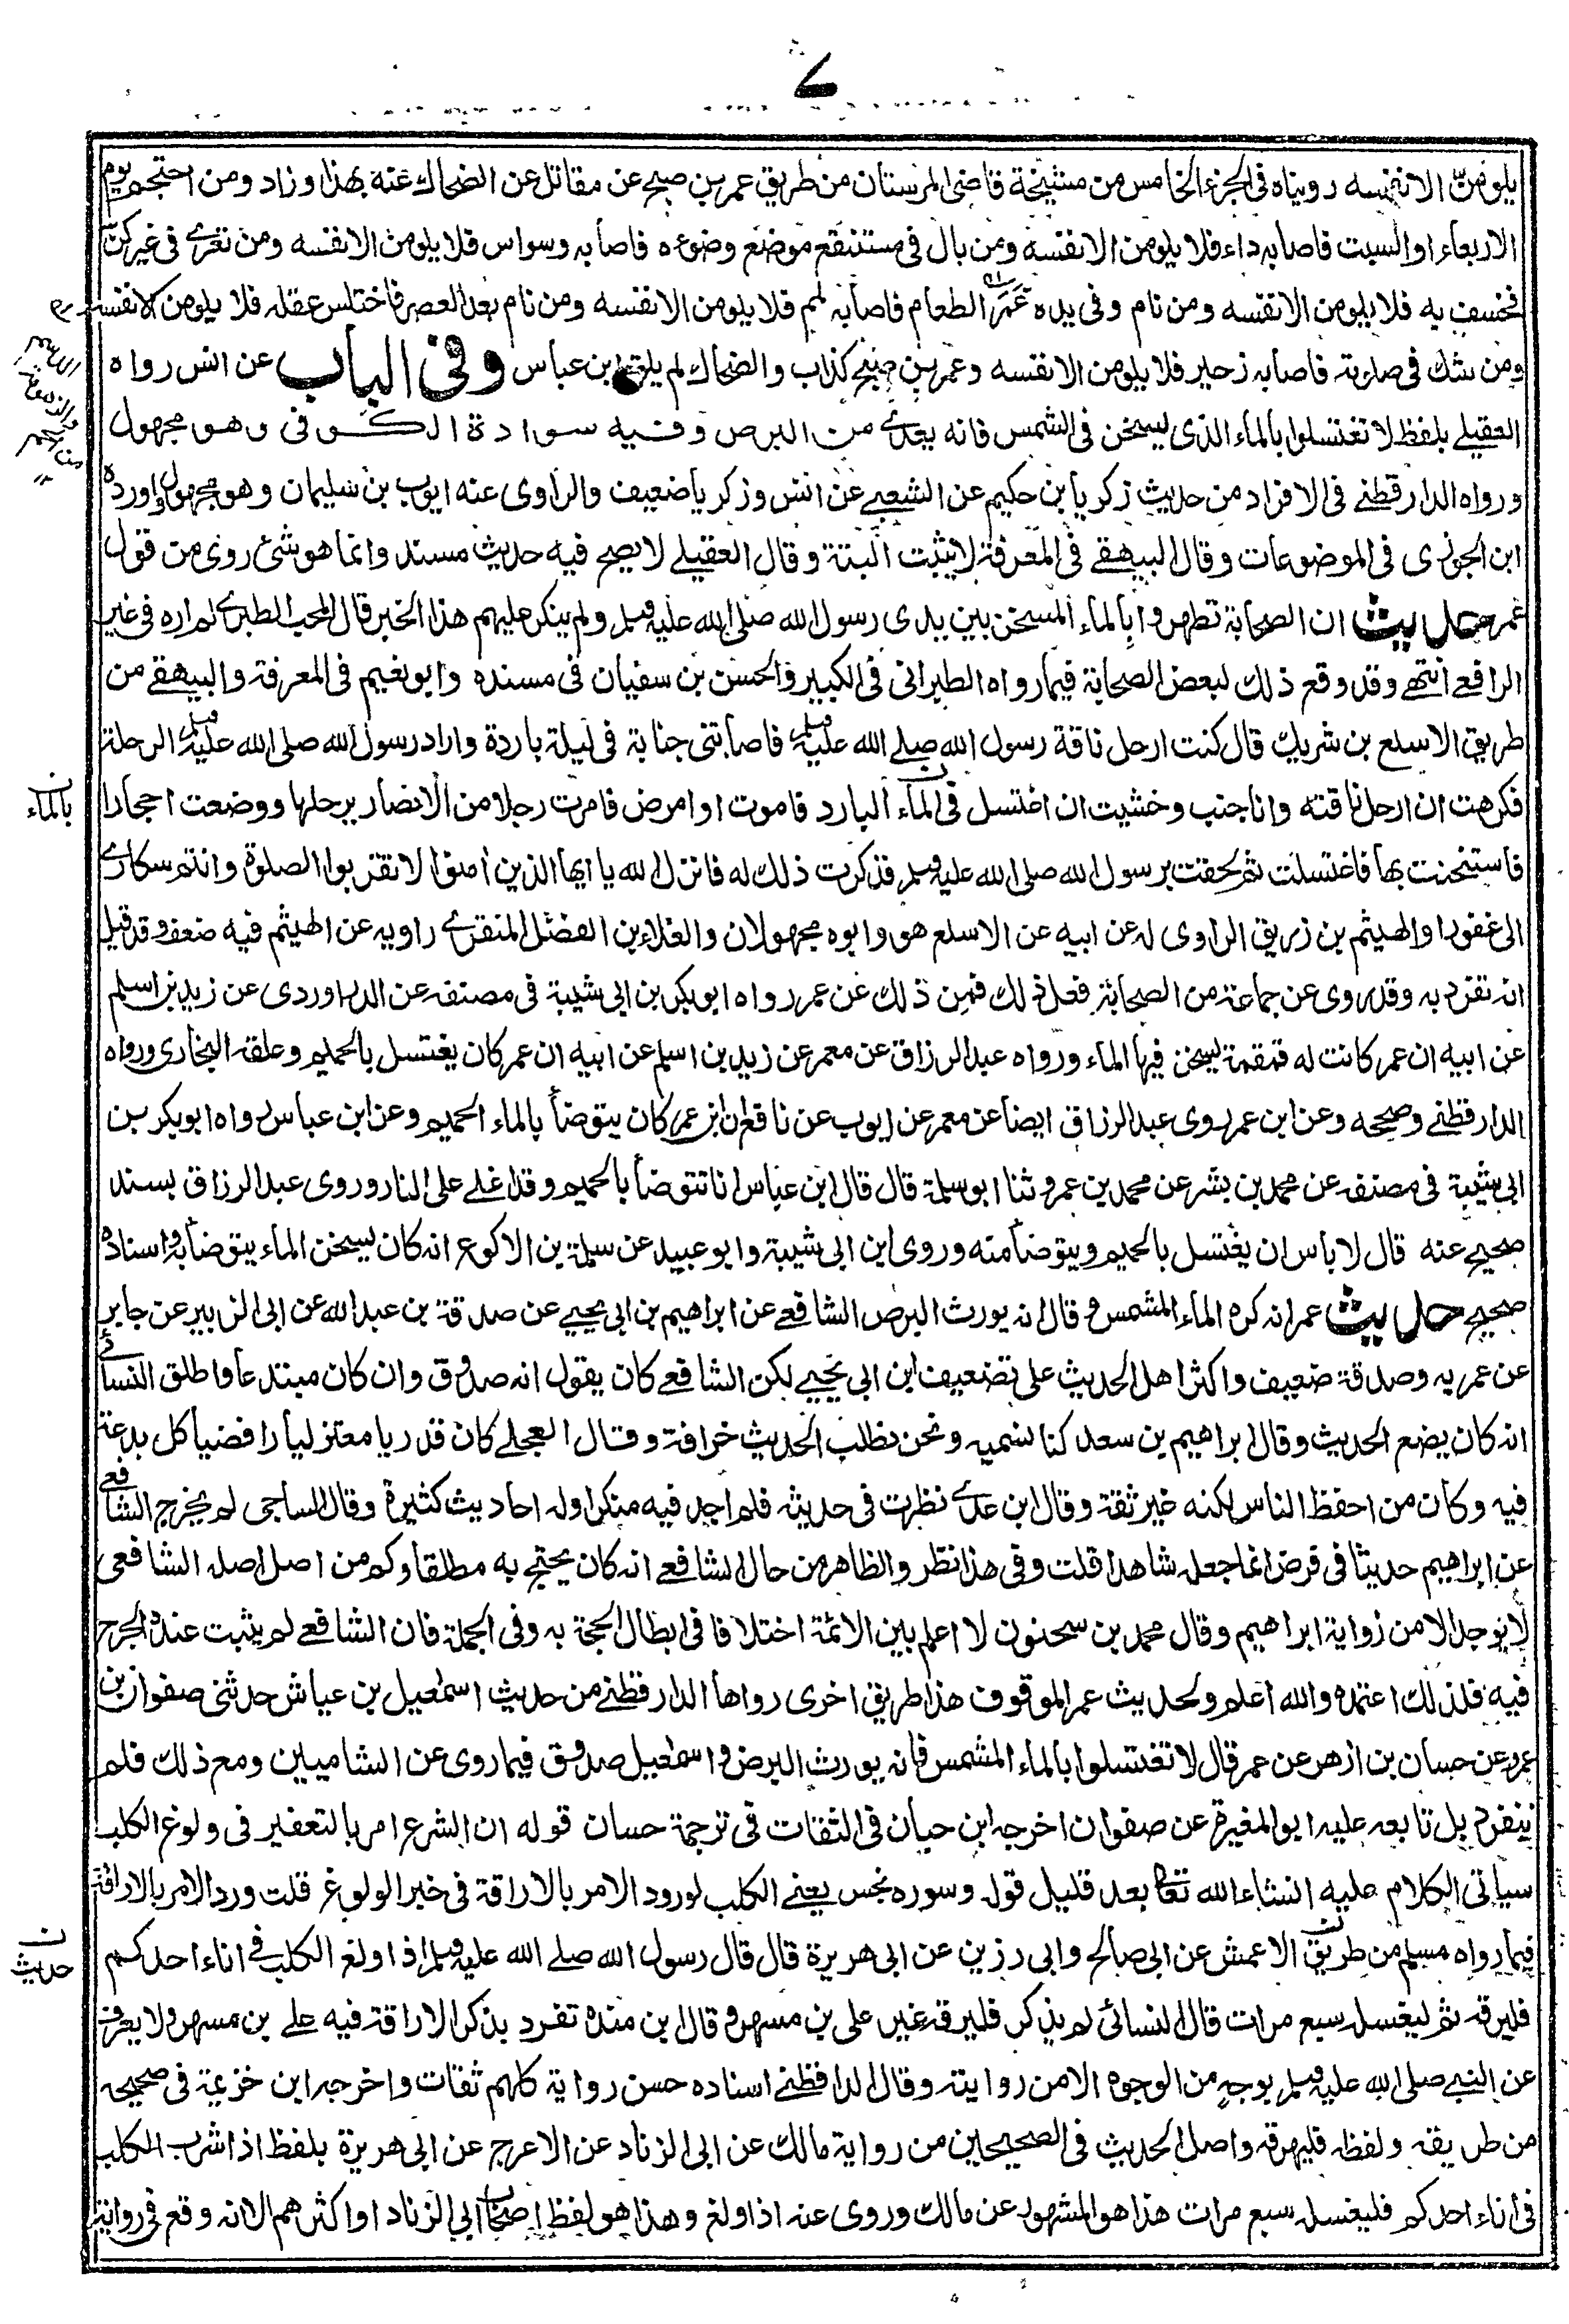 ٧
يلومنّ الا نفسه رويناه في الجزء الخامس من مشيخة قاضي المرستان من طريق عمر بن صبح عن مقاتل عن الضحاك عنه بهذا وزاد ومن احتجم يوم
الاربعاء او السبت فاصابه داء فلا يلومن الا نفسه ومن بال في مستنقع موضع وضوءه فاصابه وسواس فلا يلومن الا نفسه ومن تعرے في غير كنّ
فخسف به فلا يلومن الا نفسه ومن نام وفي يده غمر الطعام فاصابه لمم فلا يلومن الا نفسه ومن نام بعد العصر فاختلس عقله فلا يلومن الا نفسه
ومن شك في صلوته فاصابه زحير فلا يلومن الا نفسه وعمر بن صبح كذاب والضحاك لم يلق ابن عباس وفي الباب عن انس رواه
العقيلے بلفظ لا تغتسلوا بالماء الذى يسخن في الشمس فانه يعدے من البرص وفيه سوادة الكوفي وهو مجهول
ورواه الدارقطنے في الافراد من حديث زكريا بن حكيم عن الشعبے عن انس وزكريا ضعيف والراوى عنه ايوب بن سليمان وهو مجهول واورده
ابن الجوزى في الموضوعات وقال البيهقے في المعرفة لا يثبت البتة وقال العقيلے لا يصح فيه حديث مسند وانما هو شئ روى من قول
عمر حديث ان الصحابة تطهروا بالماء المسخن بين يدى رسول الله صلى الله عليه وسلم ولم ينكر عليهم هذا الخبر قال المحب الطبرے لم اره في غير
الرافعے انتهے وقد وقع ذلك لبعض الصحابة فيما رواه الطبراني في الكبير والحسن بن سفيان في مسنده وابو نعيم في المعرفة والبيهقے من
طريق الاسلع بن شريك قال كنت ارحل ناقة رسول الله صلے الله عليه وسلم فاصابتني جنابة في ليلة باردة واراد رسول الله صلى الله عليه وسلم الرحلة
فكرهت ان ارحل ناقته وانا جنب وخشيت ان اغتسل في الماء البارد فاموت او امرض فامرت رجلا من الانصار يرحلها ووضعت احجارا
بالماء ن
فاسخنت بها فاغتسلت ثم لحقت برسول الله صلى الله عليه وسلم فذكرت ذلك له فانزل الله يا ايها الذين امنوا لا تقربوا الصلوة وانتم سكارے
الى غفورا والهيثم بن زريق الراوى له عن ابيه عن الاسلع هو وابوه مجهولان والعلاء بن الفضل المنقرے راويه عن الهيثم فيه ضعف وقد قيل
انه تفرد به وقد روى عن جماعة من الصحابة فعل ذلك فمن ذلك عن عمر رواه ابو بكر بن ابي شيبة في مصنفه عن الدراوردى عن زيد بن اسلم
عن ابيه ان عمر كانت له قمقمة يسخن فيها الماء ورواه عبد الرزاق عن معمر عن زيد بن اسلم عن ابيه ان عمر كان يغتسل بالحميم وعلقه البخارى ورواه
الدارقطنے وصححه وعن ابن عمر روى عبد الرزاق ايضا عن معمر عن ايوب عن نافع ان ابن عمر كان يتوضأ بالماء الحميم وعن ابن عباس رواه ابو بكر بن
ابي شيبة في مصنفه عن محمد بن بشر عن محمد بن عمرو ثنا ابو سلمة قال قال ابن عباس انا نتوضأ بالحميم وقد اغلے على النار وروى عبد الرزاق بسند
صحيح عنه قال لا باس ان يغتسل بالحميم ويتوضأ منه وروى ابن ابي شيبة وابو عبيد عن سلمة بن الاكوع انه كان يسخن الماء يتوضأ به واسناده
صحيح حديث عمر انه كره الماء المشمس وقال انه يورث البرص الشافعے عن ابراهيم بن ابي يحيے عن صدقة بن عبد الله عن ابي الزبير عن جابر
عن عمر به وصدقة ضعيف واكثر اهل الحديث على تضعيف ابن ابي يحيے لكن الشافعے كان يقول انه صدوق وان كان مبتدعا واطلق النسائے
انه كان يضع الحديث وقال ابراهيم بن سعد كنا نسميه ونحن نطلب الحديث خرافة وقال العجلے كان قدريا معتزليا رافضيا كل بدعة
فيه وكان من احفظ الناس لكنه غير ثقة وقال ابن عدے نظرت في حديثه فلم اجد فيه منكرا وله احاديث كثيرة وقال الساجى لم يخرج الشافعے
عن ابراهيم حديثا في فرض انما جعله شاهدا قلت وفي هذا نظر والظاهر من حال الشافعے انه كان يحتج به مطلقا وكم من اصل اصله الشافعى
لا يوجد الا من رواية ابراهيم وقال محمد بن سحنون لا اعلم بين الائمة اختلافا في ابطال الحجة به وفي الجملة فان الشافعے لم يثبت عنده الجرح
فيه فلذلك اعتمده والله اعلم ولحديث عمر الموقوف هذا طريق اخرى رواها الدارقطنے من حديث اسمعيل بن عياش حدثنى صفوان بن
عمرو عن حسان بن ازهر عن عمر قال لا تغتسلوا بالماء المشمس فانه يورث البرص واسمعيل صدوق فيما روى عن الشاميين ومع ذلك فلم
ينفرد بل تابعه عليه ابو المغيرة عن صفوان اخرجه ابن حبان في الثقات في ترجمة حسان قوله ان الشرع امر بالتعفير في ولوغ الكلب
سياتى الكلام عليه انشاء الله تعالى بعد قليل قوله وسوره نجس يعنے الكلب لورود الامر بالاراقة في خبر الولوغ قلت ورد الامر بالاراقة
فيما رواه مسلم من طريق الاعمش عن ابي صالح وابي رزين عن ابي هريرة قال قال رسول الله صلے الله عليه وسلم اذا ولغ الكلب في اناء احدكم
حديث ن
فليرقه ثم ليغسله سبع مرات قال النسائى لم يذكر فليرقه غير على بن مسهر وقال ابن منده تفرد بذكر الاراقة فيه علے بن مسهر ولا يعرف
عن النبے صلى الله عليه وسلم بوجه من الوجوه الا من روايته وقال الدارقطنے اسناده حسن رواية كلهم ثقات واخرجه ابن خزيمة في صحيحه
من طريقه ولفظه فليهرقه واصل الحديث في الصحيحين من رواية مالك عن ابي الزناد عن الاعرج عن ابي هريرة بلفظ اذا شرب الكلب
في اناء احدكم فليغسله سبع مرات هذا هو المشهور عن مالك وروى عنه اذا ولغ وهذا هو لفظ اصحاب ابي الزناد او اكثرهم الا انه وقع في رواية